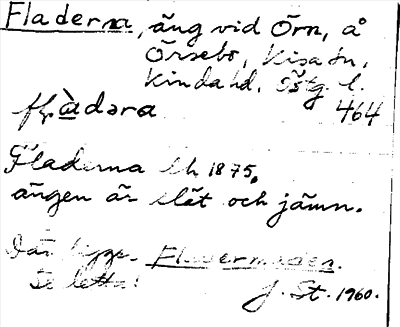 Fladerna, äng vid Örn, å
Örsebo, Kisa sn,
Kinda hd, Östg. l.
464
Fladerna lh 1875.
ängen är slät och jämn.
Där ligger
Se detta!
J. St. 1960.